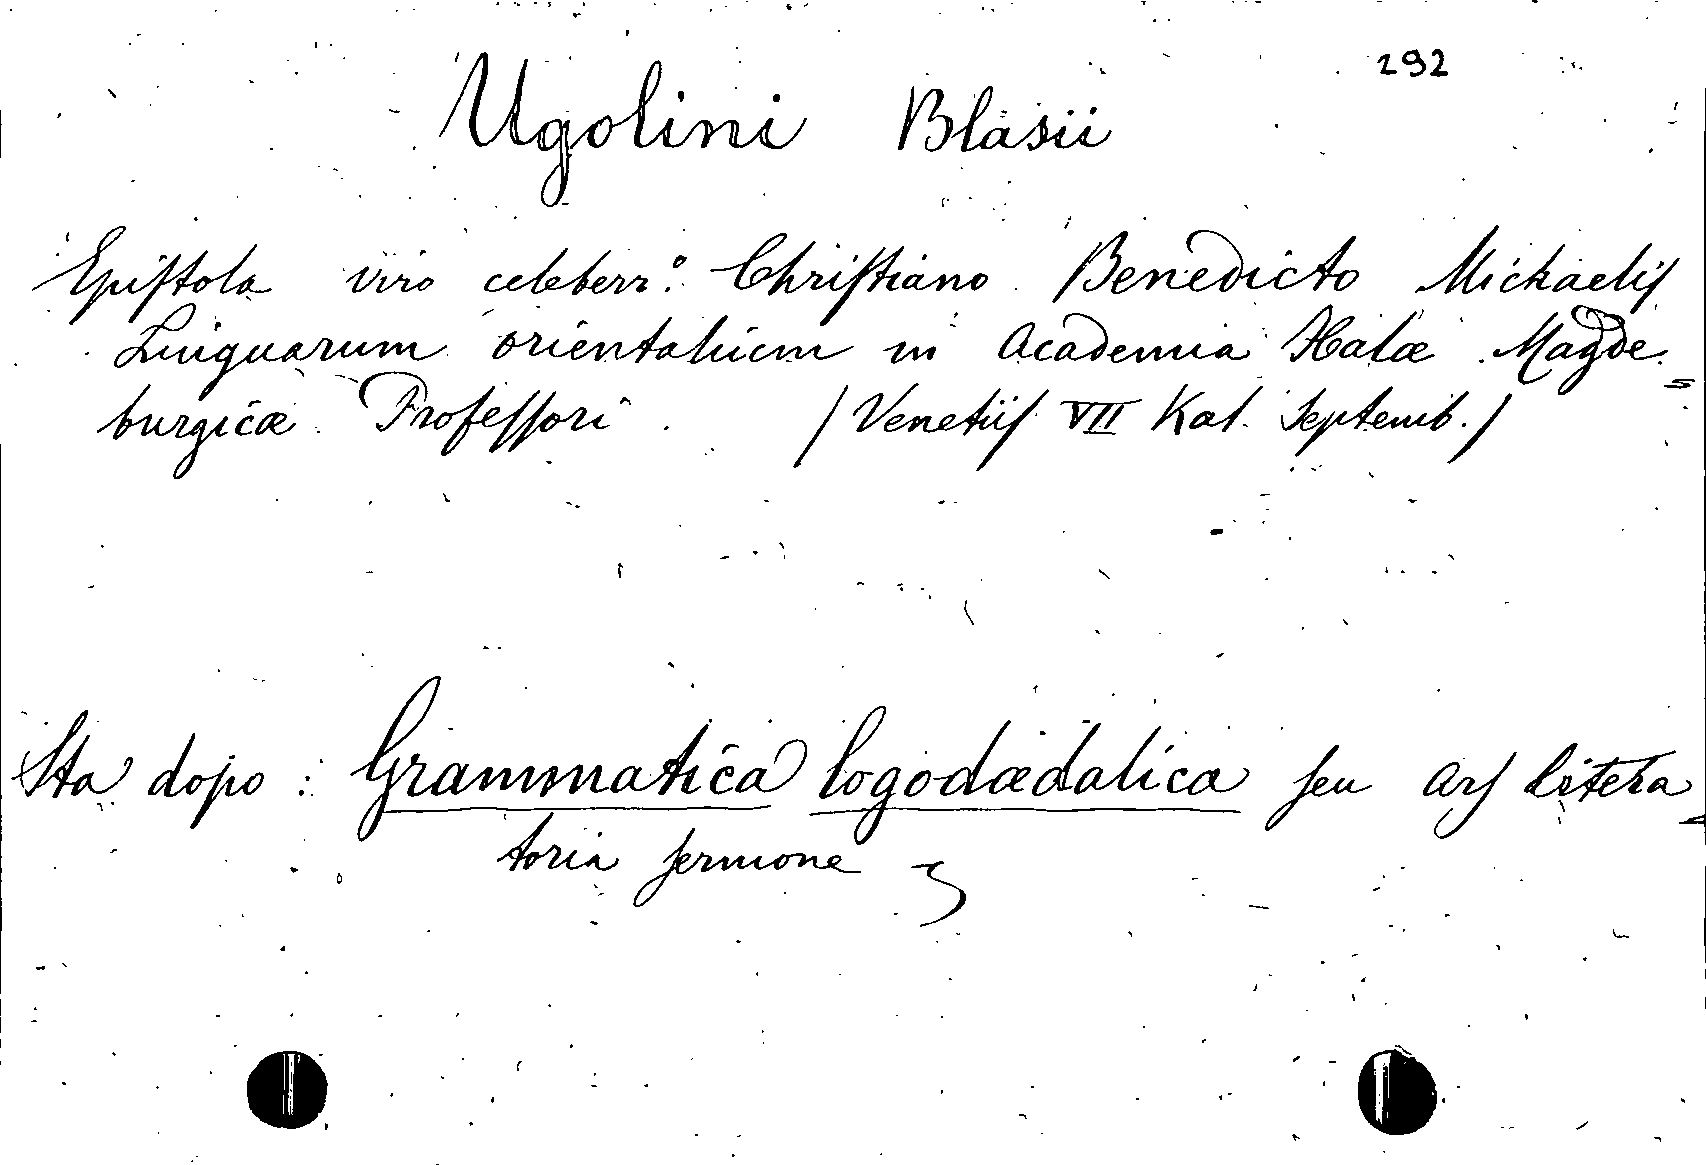 292
Ugolini Blasii
Epiſtola viro celeberr.º Chriſtiano Benedicto Michaeliſ
Linguarum orientalium in Academia Halæ Magde=
burgicæ Profeſſori (Venetiiſ VII Kal. Septemb.)
Sta dopo: Grammatica logodædalica ſeu Arſ litera=
toria ſermone